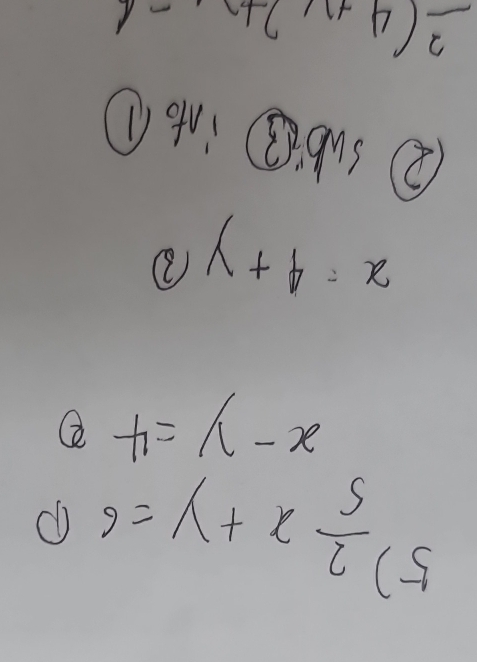 5) 2/5 x + y = 6 ①
x - y = 4 ②
x = 4 + y ③
② sub ③ into ①
2 (4 + y) + y = 6